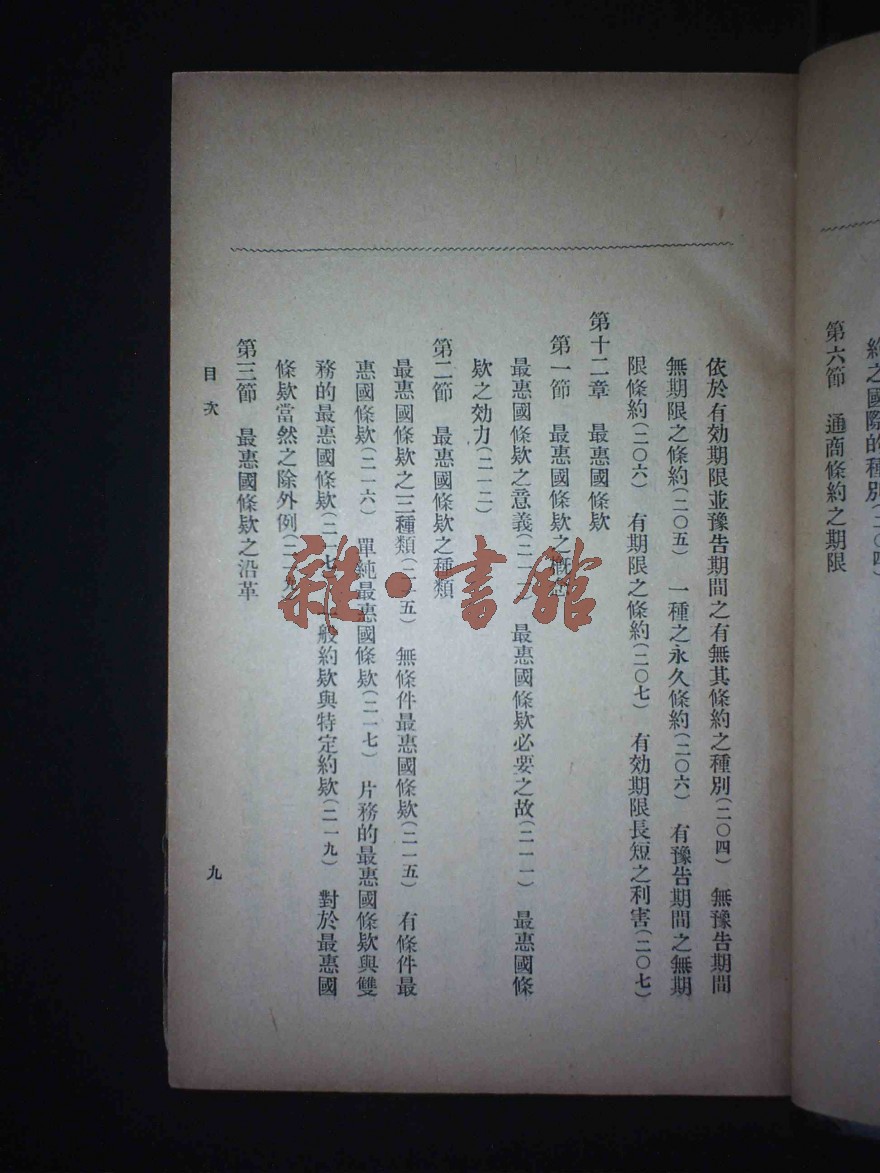 約之國際的種別(二〇四)
第六節　通商條約之期限
依於有効期限並豫告期間之有無其條約之種別(二〇四)　無豫告期間
無期限之條約(二〇五)　一種之永久條約(二〇六)　有豫告期間之無期
限條約(二〇六)　有期限之條約(二〇七)　有効期限長短之利害(二〇七)
第十二章　最惠國條欵
第一節　最惠國條欵之概
最惠國條欵之意義(二一　最惠國條欵必要之故(二一一)　最惠國條
欵之効力(二一二)
第二節　最惠國條欵之種類
最惠國條欵之三種類(二一五)　無條件最惠國條欵(二一五)　有條件最
惠國條欵(二一六)　單純最惠國條欵(二一七)　片務的最惠國條欵與雙
務的最惠國條欵(二一七　一般約欵與特定約欵(二一九)　對於最惠國
條欵當然之除外例(二一九
第三節　最惠國條欵之沿革
目次
九
雜·書館